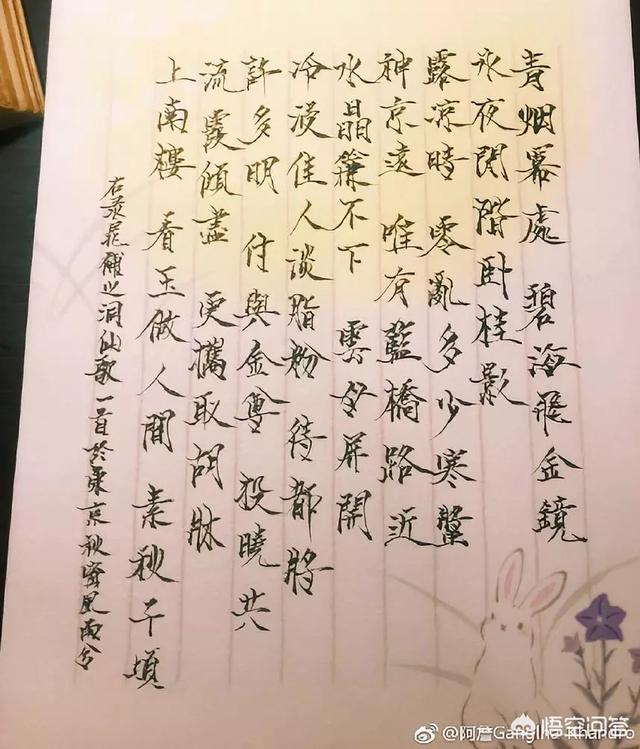 青烟冪處 碧海飛金鏡
永夜閑階卧桂影
露凉時 零亂多少寒螿
神京遠 唯有藍橋路近
水晶簾不下 雲母屏開
冷浸佳人淡脂粉 待都將
許多明 付與金尊 投曉共
流霞傾盡 更攜取胡牀
上南樓 看玉做人間 素秋千頃
右录晁補之洞仙歌一首於東京秋宵風雨
悟空问答